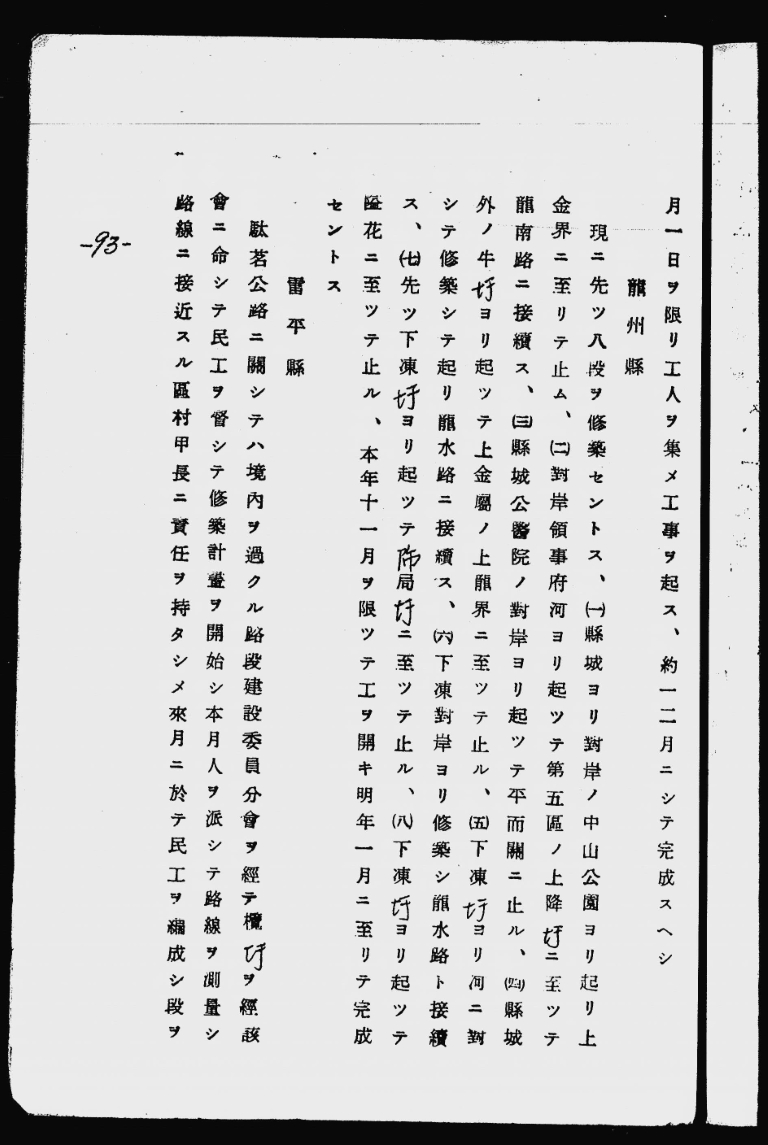 月一日ヲ限リ工人ヲ集メ工事ヲ起ス、約一二月ニシテ完成スヘシ
龍州縣
現ニ先ツ八段ヲ修築セントス、㈠縣城ヨリ對岸ノ中山公園ヨリ起リ上
金界ニ至リテ止ム、㈡對岸領事府河ヨリ起ツテ第五區ノ上降圩ニ至ツテ
龍南路ニ接續ス、㈢縣城公醫院ノ對岸ヨリ起ツテ平而關ニ止ル、㈣縣城
外ノ牛圩ヨリ起ツテ上金屬ノ上龍界ニ至ツテ止ル、㈤下凍圩ヨリ河ニ對
シテ修築シテ起リ龍水路ニ接續ス、㈥下凍對岸ヨリ修築シ龍水路ト接續
ス、㈦先ツ下凍圩ヨリ起ツテ布局圩ニ至ツテ止ル、㈧下凍圩ヨリ起ツテ
花ニ至ツテ止ル、本年十一月ヲ限ツテ工ヲ開キ明年一月ニ至リテ完成
セントス
雷平縣
馱茗公路ニ關シテハ境內ヲ過クル路段建設委員分會ヲ經テ欖圩ヲ經該
會ニ命シテ民工ヲ督シテ修築計畫ヲ開始シ本月人ヲ派シテ路線ヲ測量シ
路線ニ接近スル區村甲長ニ責任ヲ持タシメ來月ニ於テ民工ヲ編成シ段ヲ
-93-